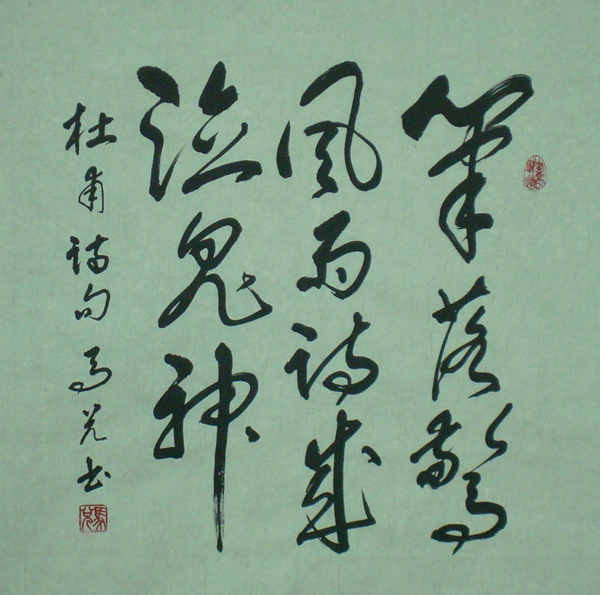 筆落驚
風雨詩成
泣鬼神
杜甫詩句 馬光书